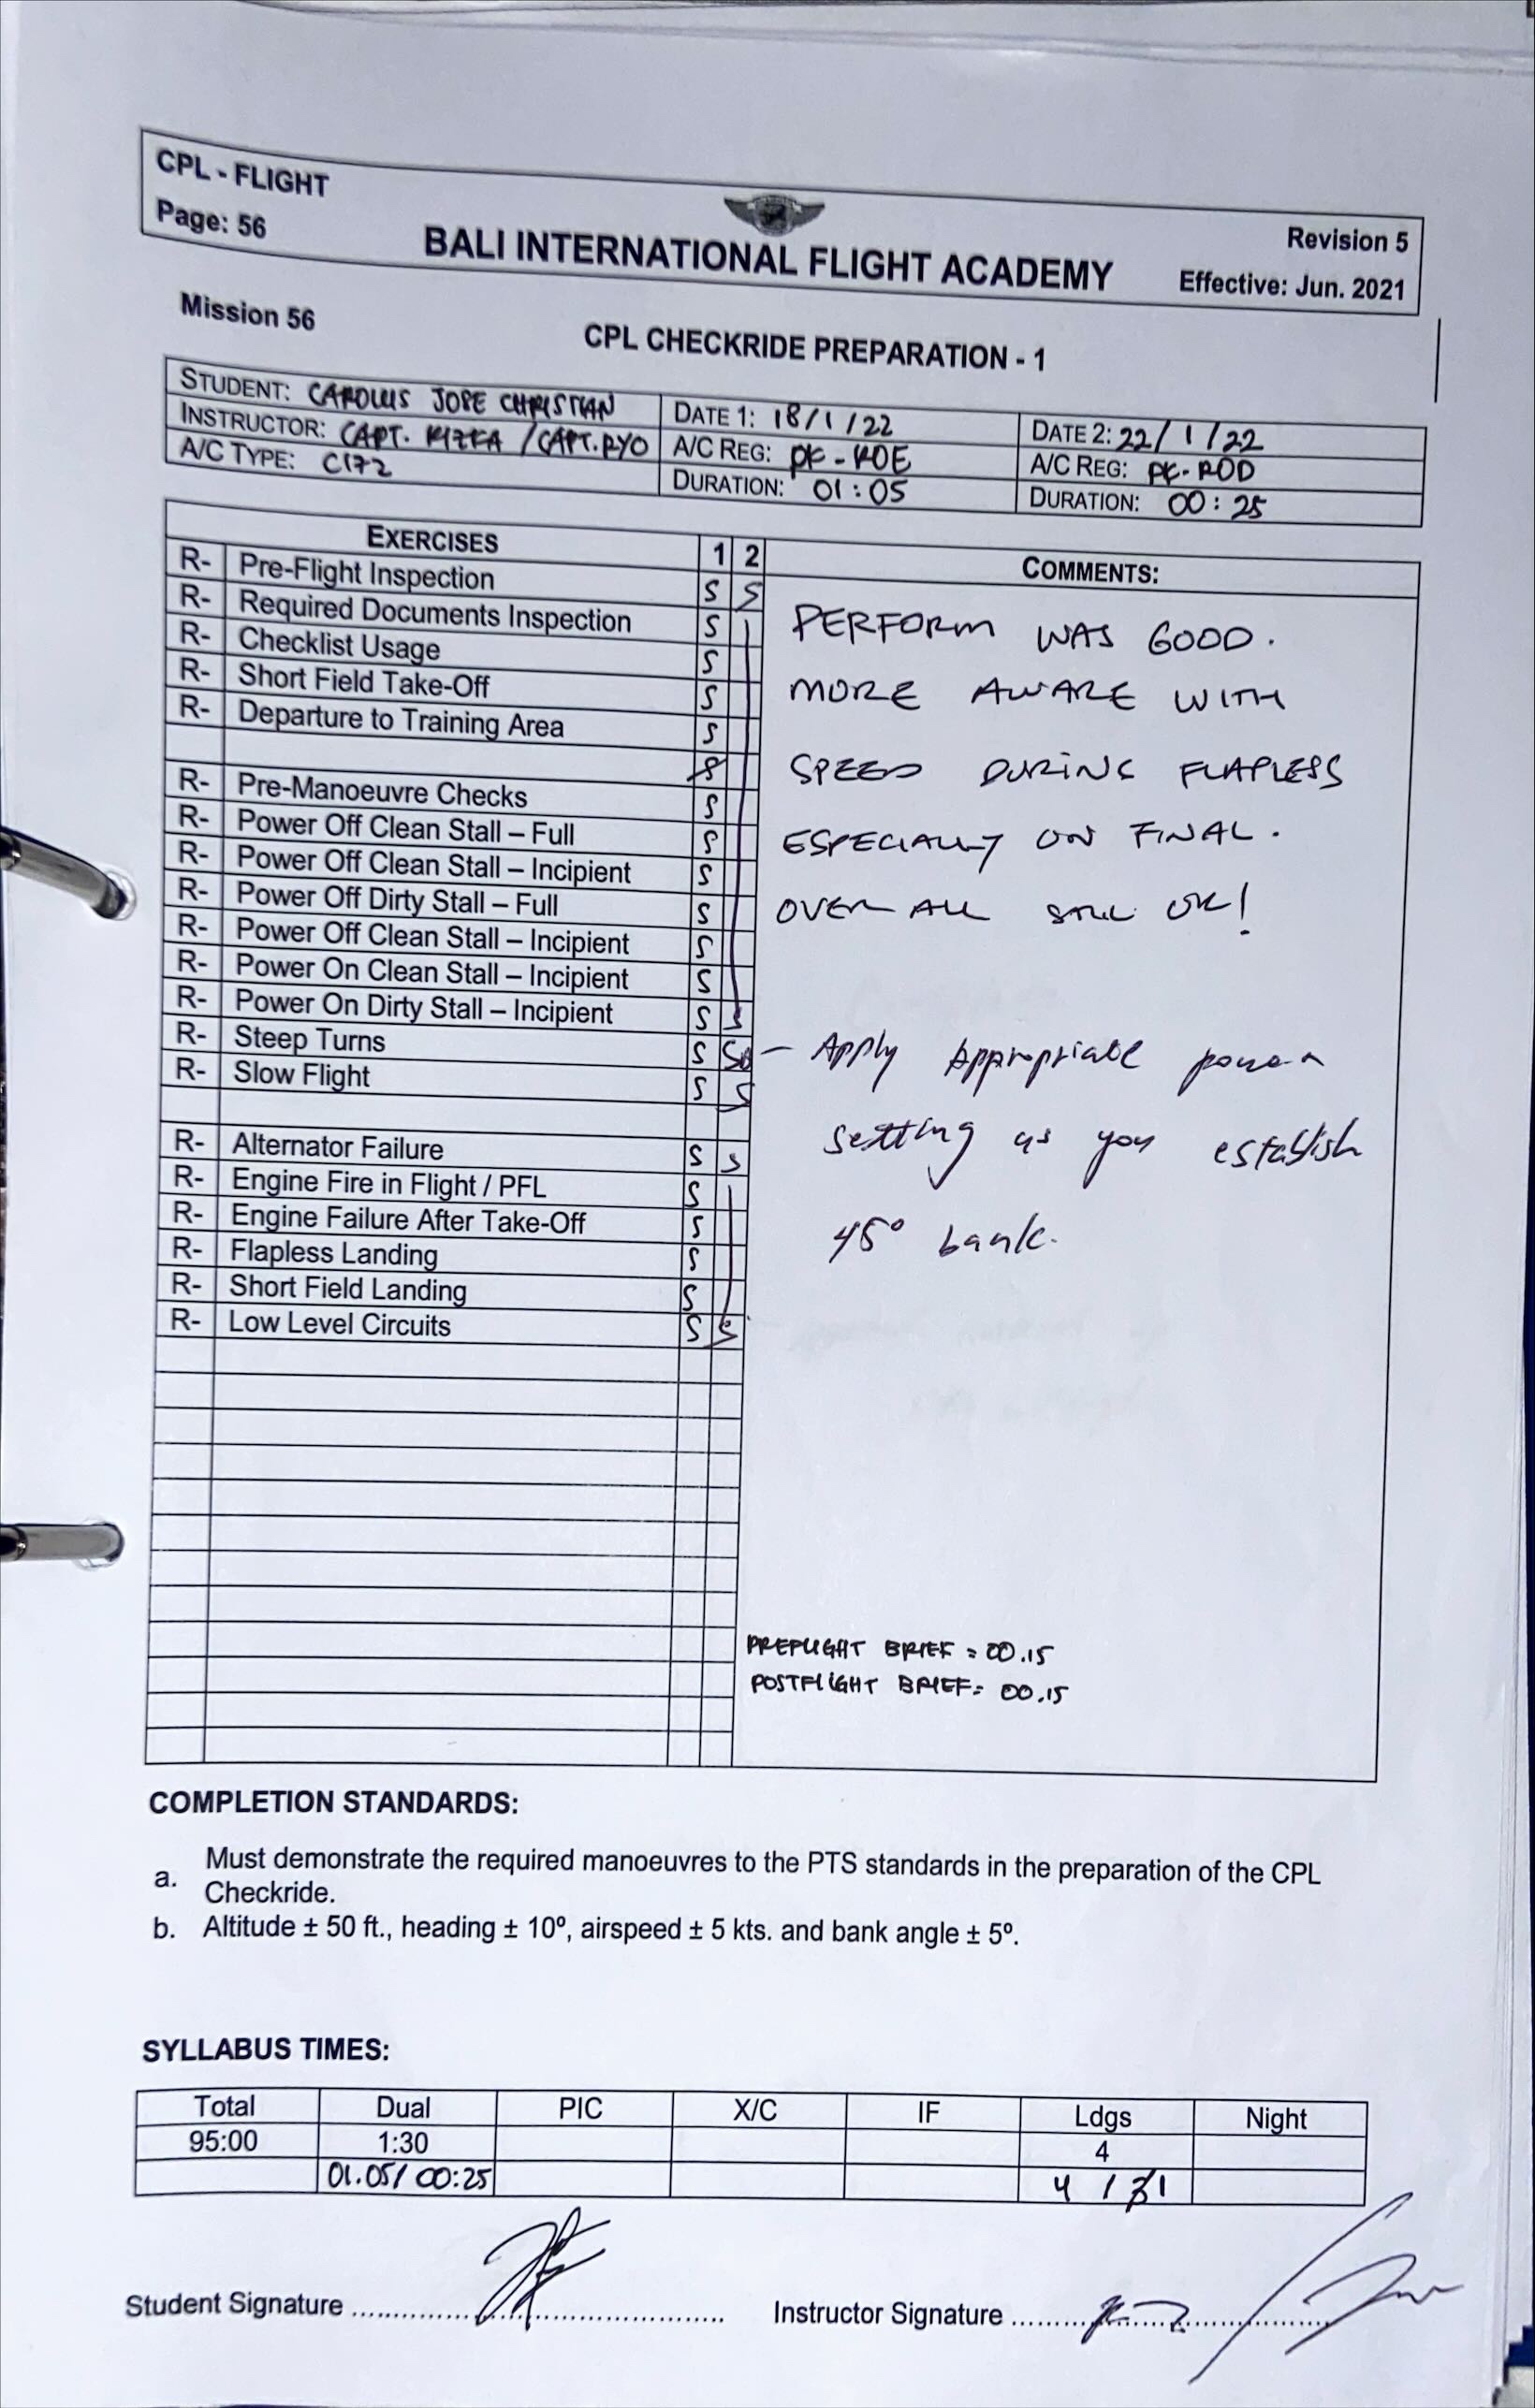 CPL - FLIGHT
Page: 56
BALI INTERNATIONAL FLIGHT ACADEMY
Revision 5
Effective: Jun. 2021
Mission 56
CPL CHECKRIDE PREPARATION - 1
STUDENT: CAROLUS JOSE CHRISTIAN DATE 1: 18/1/22 DATE 2: 22/1/22
INSTRUCTOR: CAPT. RIZKA / CAPT. RYO A/C REG: PK-ROE A/C REG: PK-ROD
A/C TYPE: C172 DURATION: 01:05 DURATION: 00:25
EXERCISES 1 2 COMMENTS:
R- Pre-Flight Inspection S S
R- Required Documents Inspection S
R- Checklist Usage S
R- Short Field Take-Off S
R- Departure to Training Area S
S
R- Pre-Manoeuvre Checks S
R- Power Off Clean Stall – Full S
R- Power Off Clean Stall – Incipient S
R- Power Off Dirty Stall – Full S
R- Power Off Clean Stall – Incipient S
R- Power On Clean Stall – Incipient S
R- Power On Dirty Stall – Incipient S S
R- Steep Turns S
R- Slow Flight S S
R- Alternator Failure S S
R- Engine Fire in Flight / PFL S
R- Engine Failure After Take-Off S
R- Flapless Landing S
R- Short Field Landing S
R- Low Level Circuits S S
PERFORM WAS GOOD.
MORE AWARE WITH
SPEED DURING FLAPLESS
ESPECIALLY ON FINAL.
OVER ALL STILL OK!
- Apply Appropriate power
setting as you establish
45° bank.
PREFLIGHT BRIEF = 00.15
POSTFLIGHT BRIEF = 00.15
COMPLETION STANDARDS:
a. Must demonstrate the required manoeuvres to the PTS standards in the preparation of the CPL
Checkride.
b. Altitude ± 50 ft., heading ± 10º, airspeed ± 5 kts. and bank angle ± 5º.
SYLLABUS TIMES:
Total Dual PIC X/C IF Ldgs Night
95:00 1:30 4
01.05/ 00:25 4 / 1
Student Signature ........................
Instructor Signature ........................